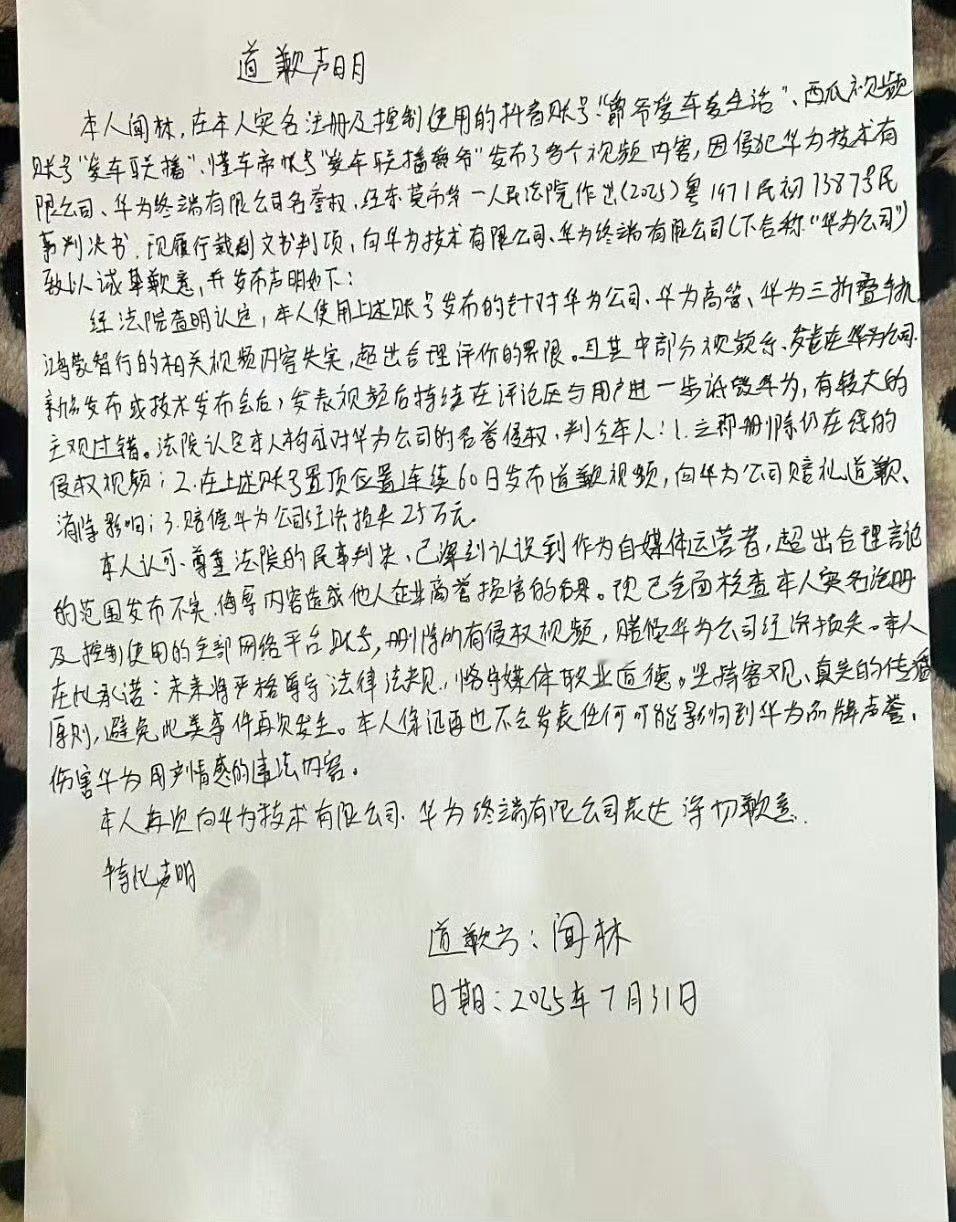 道歉声明
本人闻林,在本人实名注册及控制使用的抖音账号“爵爷爱车爱生活”、西瓜视频
账号“爱车联播”、懂车帝帐号“爱车联播爵爷”发布了多个视频内容,因侵犯华为技术有
限公司、华为终端有限公司名誉权,经东莞市第一人民法院作出(2025)粤1971民初7387号民
事判决书.现履行裁判文书判项,向华为技术有限公司、华为终端有限公司(下合称“华为公司”)
致以诚挚歉意,并发布声明如下:
经法院查明认定,本人使用上述账号发布的针对华为公司、华为高管、华为三折叠手机、
鸿蒙智行的相关视频内容失实,超出合理评价的界限。且其中部分视频系发表在华为公司
新品发布或技术发布会后,发表视频后持续在评论区与用户进一步诋毁华为,有较大的
主观过错。法院认定本人构成对华为公司的名誉侵权,判令本人:1.立即删除仍在线的
侵权视频;2.在上述账号置顶位置连续60日发布道歉视频,向华为公司赔礼道歉、
消除影响;3.赔偿华为公司经济损失25万元.
本人认可、尊重法院的民事判决,已深刻认识到作为自媒体运营者,超出合理言论
的范围发布不实、侮辱内容造成他人企业商誉损害的后果。现已全面核查本人实名注册
及控制使用的全部网络平台账号,删除所有侵权视频,赔偿华为公司经济损失。本人
在此承诺:未来将严格遵守法律法规,恪守媒体职业道德。坚持客观、真实的传播
原则,避免此类事件再次发生。本人保证再也不会发表任何可能影响到华为品牌声誉、
伤害华为用户情感的违法内容。
本人再次向华为技术有限公司.华为终端有限公司表达深切歉意.
特此声明
道歉方:闻林
日期:2025年7月31日